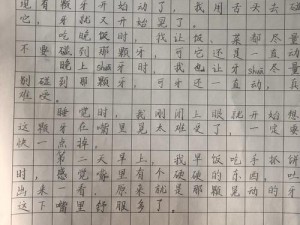 现有颗牙开始动了，我用舌头去碰
吧，牙就又开始晃了。
吃晚饭时，我让饭、菜都尽量
不要碰到那颗牙，可它还是一直动，真
晚上shuā牙时，我也让牙shuā尽量
别碰到那颗牙，可牙还一直动，真
难受。
睡觉时，我刚闭上眼就开始想
这颗牙在嘴里晃太难受了，一定要
快一点掉。
第二天早上，我早饭吃手抓饼
时，感觉嘴里有个硬硬的东西，吐
出来一看，原来就是那颗晃动的牙
这下嘴里舒服多了。